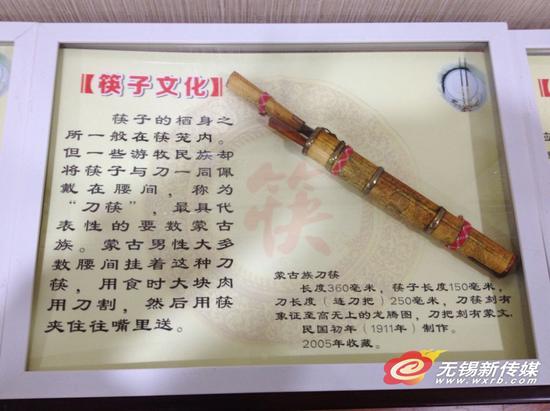 【筷子文化】
筷子的栖身之
所一般在筷笼内。
但一些游牧民族却
将筷子与刀一同佩
戴在腰间，称为
“刀筷”，最具代
表性的要数蒙古
族。蒙古男性大多
数腰间挂着这种刀
筷，用食时大块肉
用刀割，然后用筷
夹住往嘴里送。
筷
蒙古族刀筷
长度360毫米，筷子长度150毫米，
刀长度（连刀把）250毫米，刀筷刻有
象证至高无上的龙腾图，刀把刻有蒙文，
民国初年（1911年）制作。
2005年收藏。
无锡新传媒
www.wxrb.com